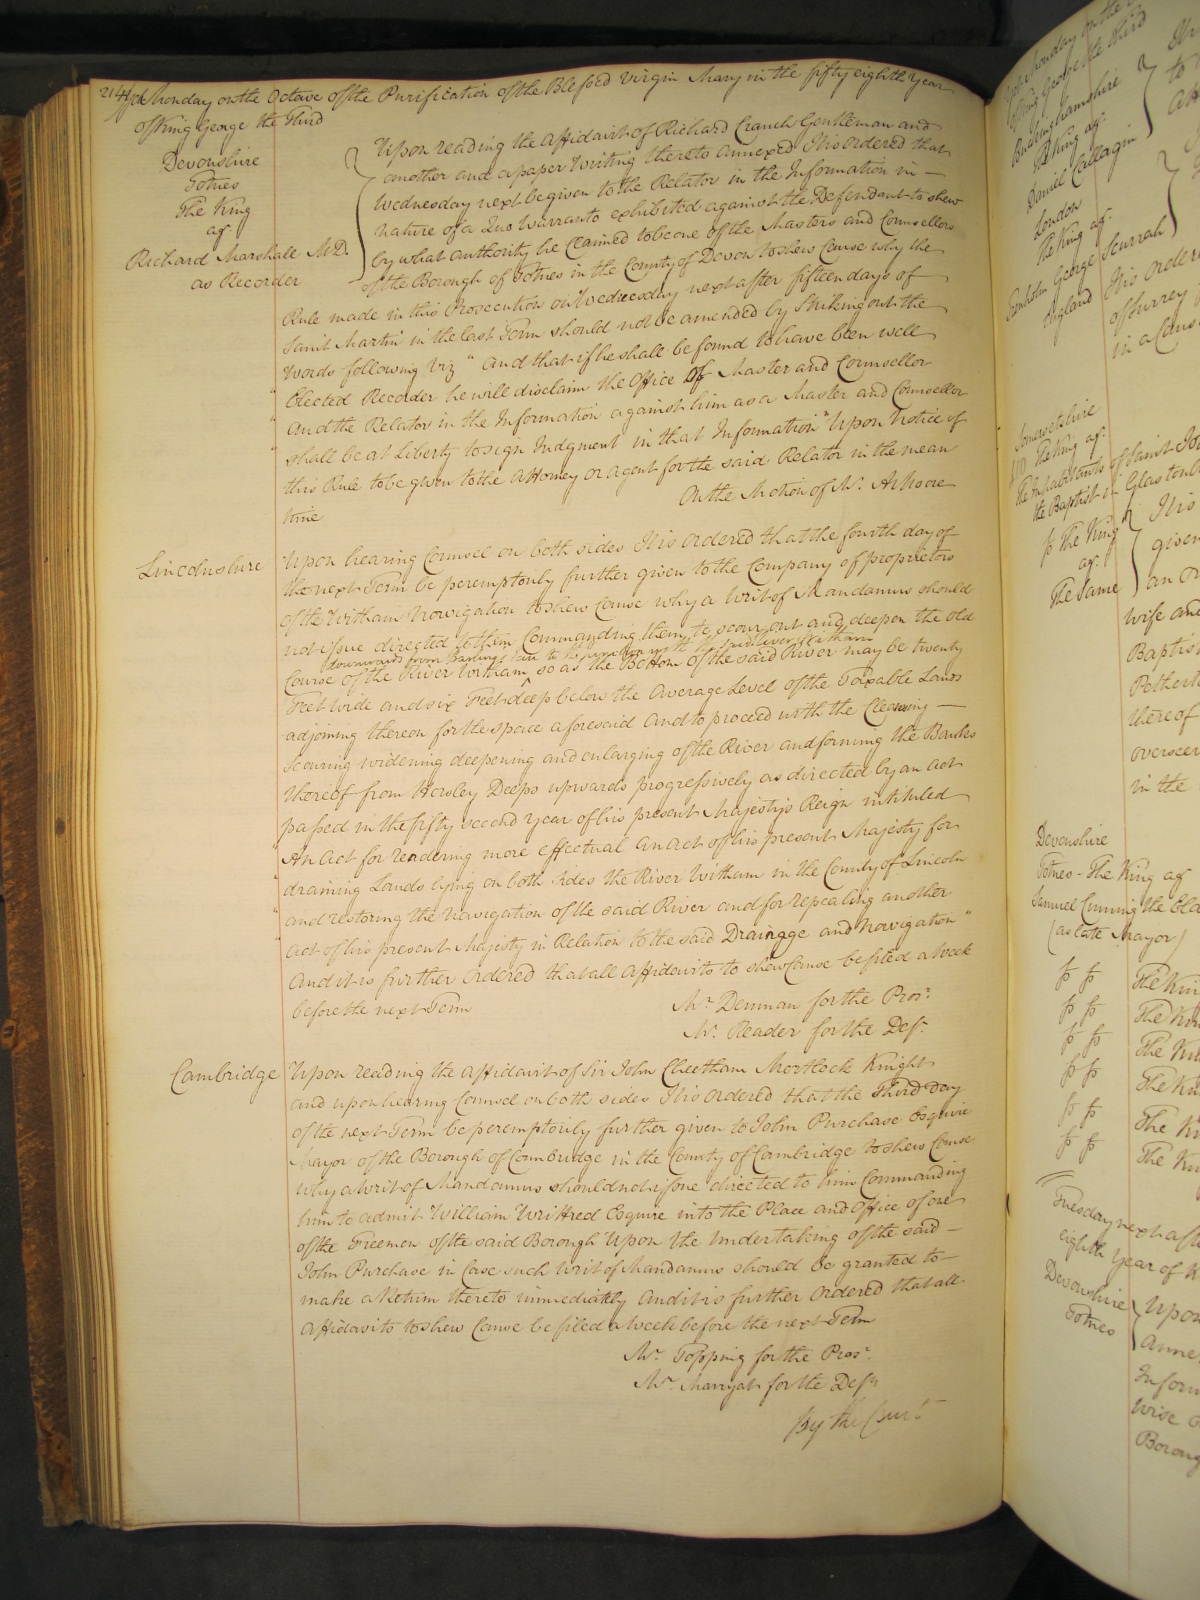 214
Yet Monday on the Octave of the Purification of the Blessed Virgin Mary in the fifty eighth Year
of King George the Third
Devonshire
Totnes
The King
agt
Richard Marshall M.D.
as Recorder
Upon reading the Affidavit of Richard Cranch Gentleman and
another and a paper Writing thereto annexed It is Ordered that
Wednesday next be given to the Relator in the Information in
nature of a Quo Warranto exhibited against the Defendant to shew
by what authority he Claimed to be one of the Masters and Counsellors
of the Borough of Totnes in the County of Devon to shew Cause why the
Rule made in this Prosecution on Wednesday next after fifteen days of
Saint Martin in the last Term should not be amended by Striking out the
Words following viz "And that if he shall be found to have been well
" Elected Recorder he will disclaim the Office of Master and Counsellor
" And the Relator in the Information against him as a Master and Counsellor
" shall be at Liberty to sign Judgment in that Information" Upon Notice of
this Rule to be given to the Attorney or Agent for the said Relator in the mean
time
On the Motion of Mr. A Moore
Lincolnshire
Upon hearing Counsel on both sides It is Ordered that the fourth day of
the next Term be peremptorily further given to the Company of proprietors
of the Witham Navigation to shew Cause why a Writ of Mandamus should
not issue directed to them Commanding them to scour out and deepen the old
downwards from Barlings Eau to the junction with the said River Witham
Course of the River Witham ^ so as the Bottom of the said River may be twenty
Feet wide and six Feet deep below the Average Level of the Taxable Lands
adjoining thereon for the space aforesaid And to proceed with the Cleansing
Scouring widening deepening and enlarging of the River and forming the Banks
thereof from Horsley Deeps upwards progressively as directed by an Act
passed in the fifty second year of his present Majesty's Reign intituled
" An Act for rendering more effectual An Act of his present Majesty for
" draining Lands lying on both sides the River Witham in the County of Lincoln
" and restoring the Navigation of the said River and for repealing another
" Act of his present Majesty in Relation to the said Drainage and Navigation"
And it is further Ordered that all Affidavits to shew Cause be filed a Week
before the next Term
Mr. Denman for the Prosr.
Mr. Reader for the Deft.
Cambridge
Upon reading the Affidavit of Sir John Cheetham Mortlock Knight
and upon hearing Counsel on both sides It is Ordered that the Third Day
of the next Term be peremptorily further given to John Purchase Esquire
Mayor of the Borough of Cambridge in the County of Cambridge to shew Cause
why a Writ of Mandamus should not issue directed to him Commanding
him to admit William Writtred Esquire into the Place and Office of one
of the Freemen of the said Borough Upon the Undertaking of the said
John Purchase in Case such Writ of Mandamus should be granted to
make a Return thereto immediately And it is further Ordered that all
Affidavits to shew Cause be filed a Week before the next Term
Mr. Topping for the Prosr.
Mr. Marryat for the Deft
By the Court
Yet Monday on the
of King George the Third
Buckinghamshire
The King agt.
Daniel Callagin
London
The King agt.
George Scurrah
England
It is Ordered
of Surrey
in a Cause
Somersetshire
The King agt.
The Inhabitants of Saint John
the Baptist in Glastonbury
The King
agt.
The Same
It is
given
an Or
wife and
Baptist
thereof
overseer
in the
Devonshire
Totnes - The King agt
Samuel Cuming the Elder
(as late Mayor)
The King
The King
The King
The King
The King
The King
Tuesday next after
eighth Year of K
Devonshire
Totnes
Upon
anne
Inform
wise
Borough